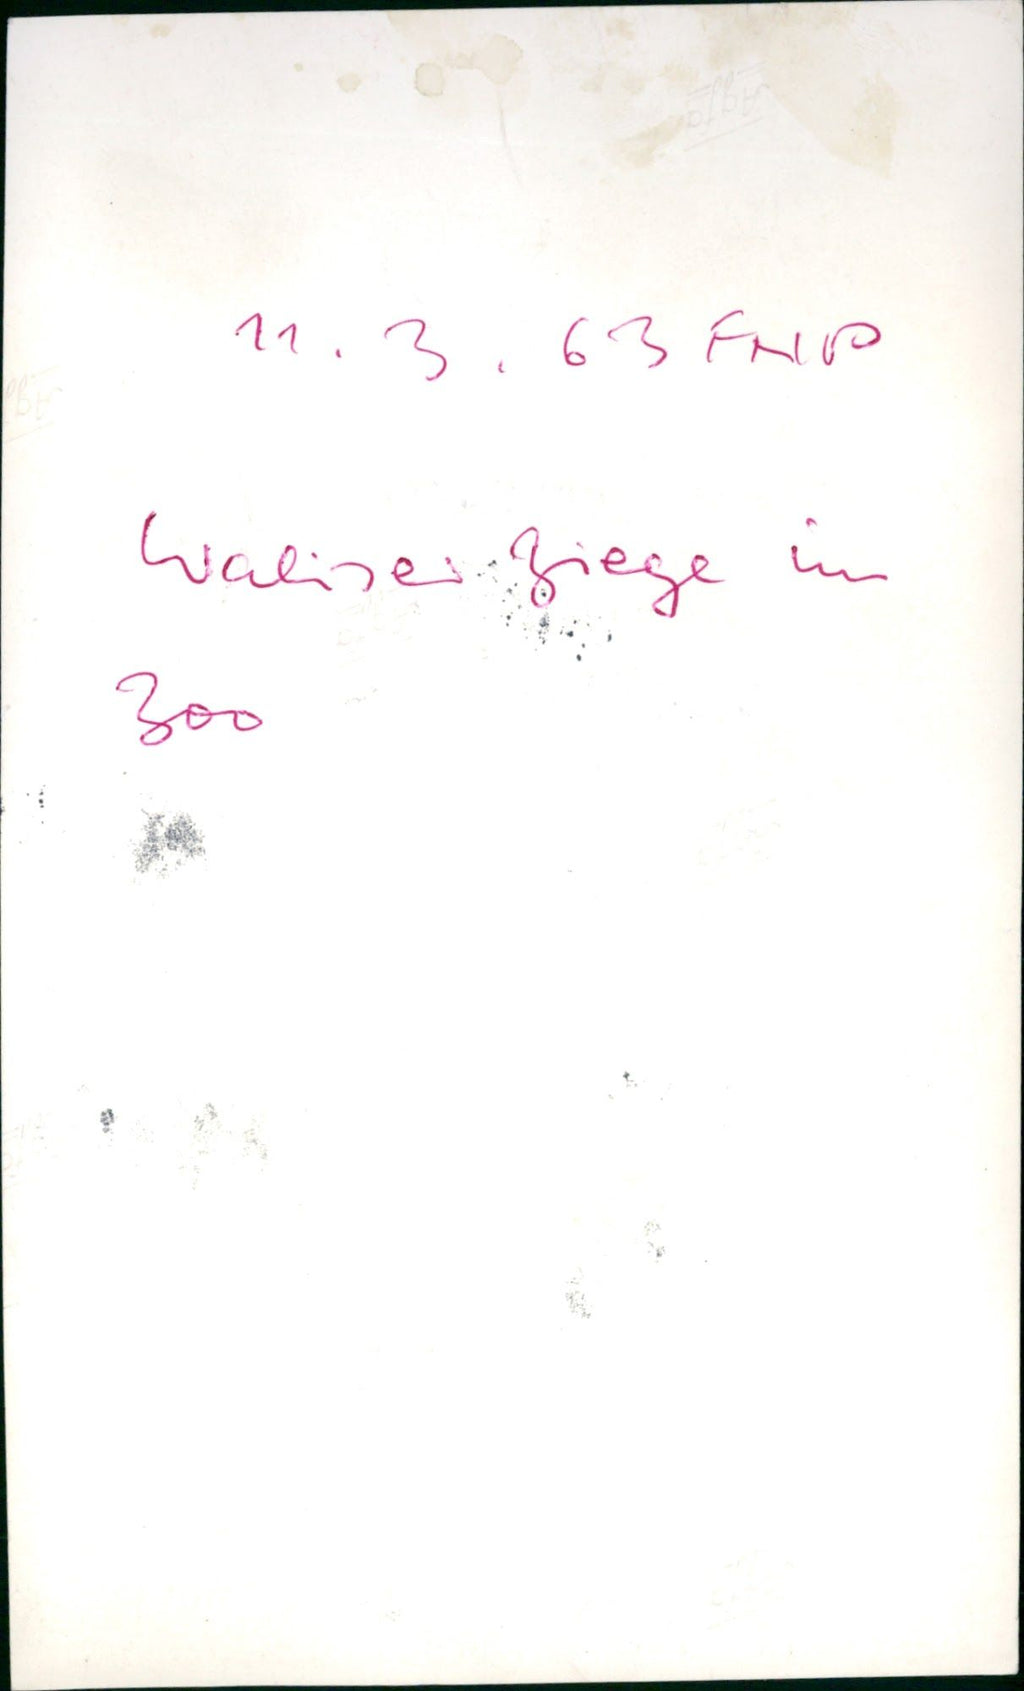 11. 3. 63 FNP
Waliser Ziege im
Zoo